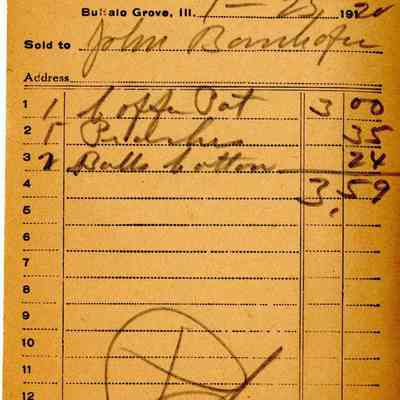 Buffalo Grove, Ill. 1-23 1920
Sold to John Bornhofen
Address
1 1 Coffee Pot 3 00
2 35
3 2 Balls Cotton 24
4 3.59
5
6
7
8
9
10
11
12